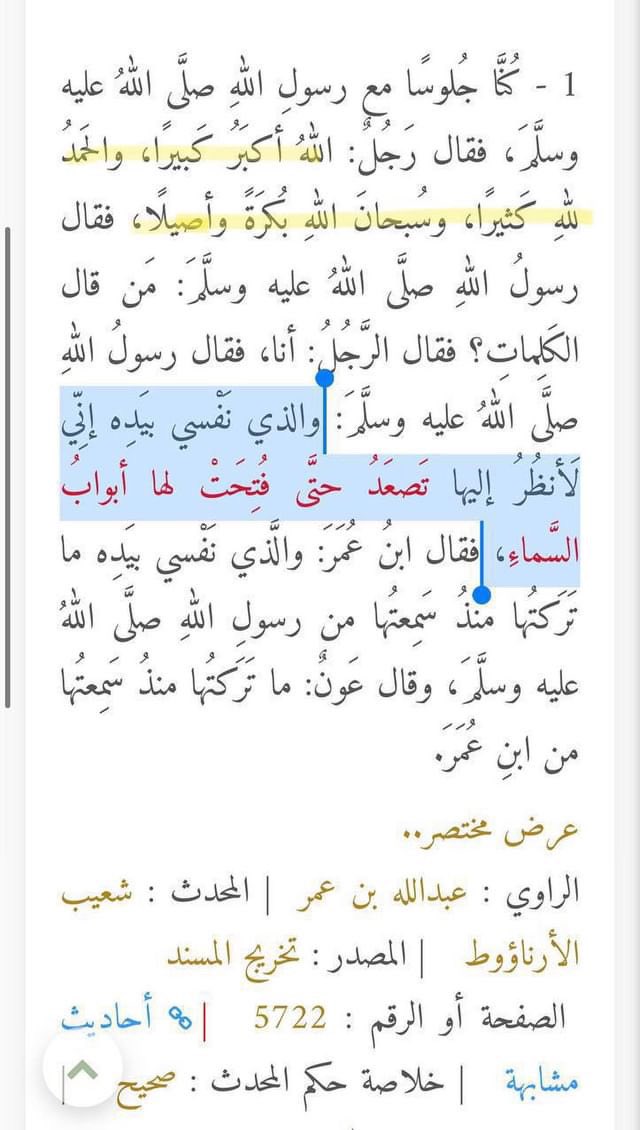 1 - كُنَّا جُلوسًا مع رسولِ اللهِ صلَّى اللهُ عليه
وسلَّمَ، فقال رَجُلٌ: اللهُ أكبَرُ كَبيرًا، والحَمدُ
للهِ كَثيرًا، وسُبحانَ اللهِ بُكرَةً وأصيلًا، فقال
رسولُ اللهِ صلَّى اللهُ عليه وسلَّمَ: مَن قال
الكَلِماتِ؟ فقال الرَّجُلُ: أنا، فقال رسولُ اللهِ
صلَّى اللهُ عليه وسلَّمَ: والذي نَفْسي بيَدِه إنِّي
لَأنظُرُ إليها تَصعَدُ حتَّى فُتِحَتْ لها أبوابُ
السَّماءِ، فقال ابنُ عُمَرَ: والَّذي نَفْسي بيَدِه ما
تَرَكتُها منذُ سَمِعتُها من رسولِ اللهِ صلَّى اللهُ
عليه وسلَّمَ، وقال عَونٌ: ما تَرَكتُها منذُ سَمِعتُها
من ابنِ عُمَرَ.
عرض مختصر..
الراوي : عبدالله بن عمر | المحدث : شعيب
الأرناؤوط | المصدر : تخريج المسند
الصفحة أو الرقم : 5722 | أحاديث
مشابهة | خلاصة حكم المحدث : صحيح |